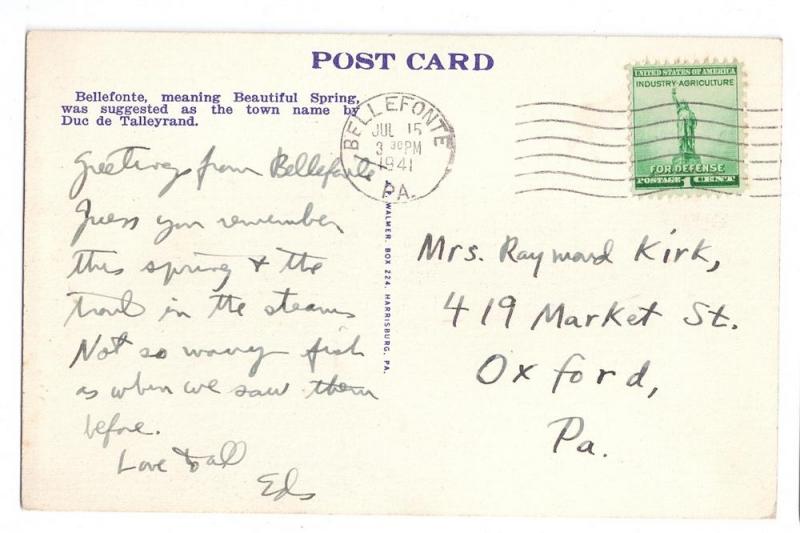 POST CARD
Bellefonte, meaning Beautiful Spring,
was suggested as the town name by
Duc de Talleyrand.
BELLEFONTE
JUL 15
3 30 PM
1941
PA.
UNITED STATES OF AMERICA
INDUSTRY-AGRICULTURE
FOR DEFENSE
POSTAGE 1 CENT
Greetings from Bellefonte
Guess you remember
this spring & the
trout in the stream
Not so many fish
as when we saw them
before.
Love to all
Eds
WALMER, BOX 224, HARRISBURG, PA.
Mrs. Raymond Kirk,
419 Market St.
Oxford,
Pa.